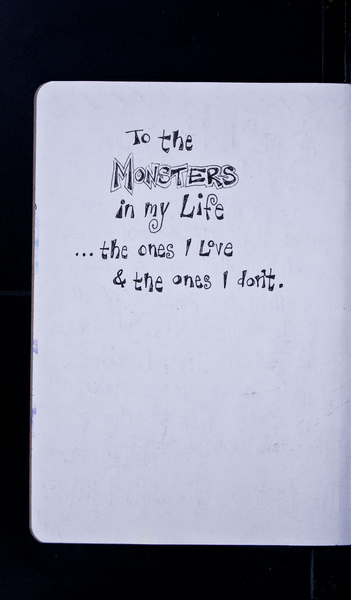 To the
MONSTERS
in my Life
...the ones I Love
& the ones I don't.